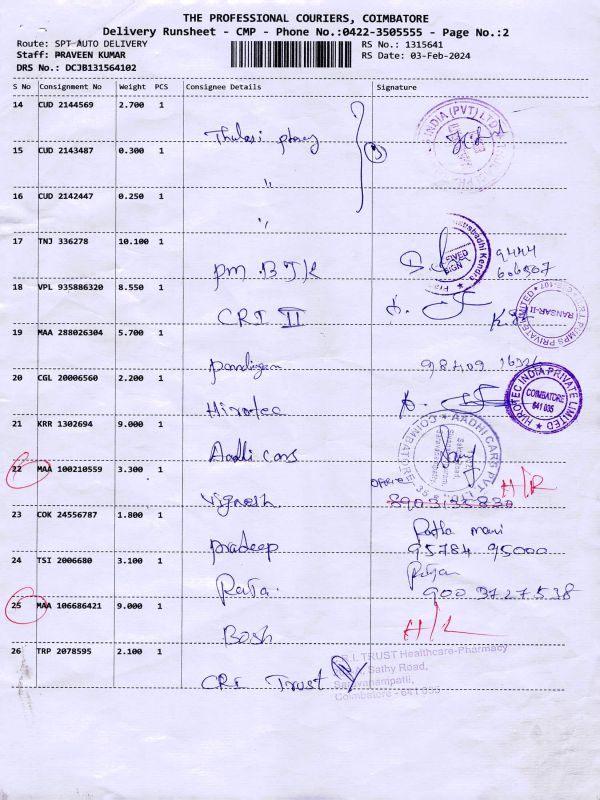 THE PROFESSIONAL COURIERS, COIMBATORE
Delivery Runsheet - CMP - Phone No.:0422-3505555 - Page No.:2
Route: SPT-AUTO DELIVERY
Staff: PRAVEEN KUMAR
DRS No.: DCJB131564102
RS No.: 1315641
RS Date: 03-Feb-2024
S No Consignment No Weight PCS Consignee Details Signature
14 CUD 2144569 2.700 1
Thulasi
15 CUD 2143487 0.300 1
"
16 CUD 2142447 0.250 1
"
17 TNJ 336278 10.100 1
PM BJK 9444
606507
18 VPL 935886320 8.550 1
CRI II
19 MAA 288026304 5.700 1
Pandiyan 98409
20 CGL 20006560 2.200 1
Hirotec
21 KRR 1302694 9.000 1
Aadhi cars
22 MAA 100210559 3.300 1 H/R
Vignesh
23 COK 24556787 1.800 1
Pradeep 95784 95000
24 TSI 2006680 3.100 1
Raja 900 3727538
25 MAA 106686421 9.000 1
Bosh
26 TRP 2078595 2.100 1
CRI Trust
INDIA (PVT) LTD
RANSAR-II
HIROTEC INDIA PRIVATE LIMITED
COIMBATORE
641 035
AADHI CARS PVT
COIMBATORE
TRUST Healthcare-Pharmacy
Sathy Road,
Saravanampatti,
Coimbatore - 641 035